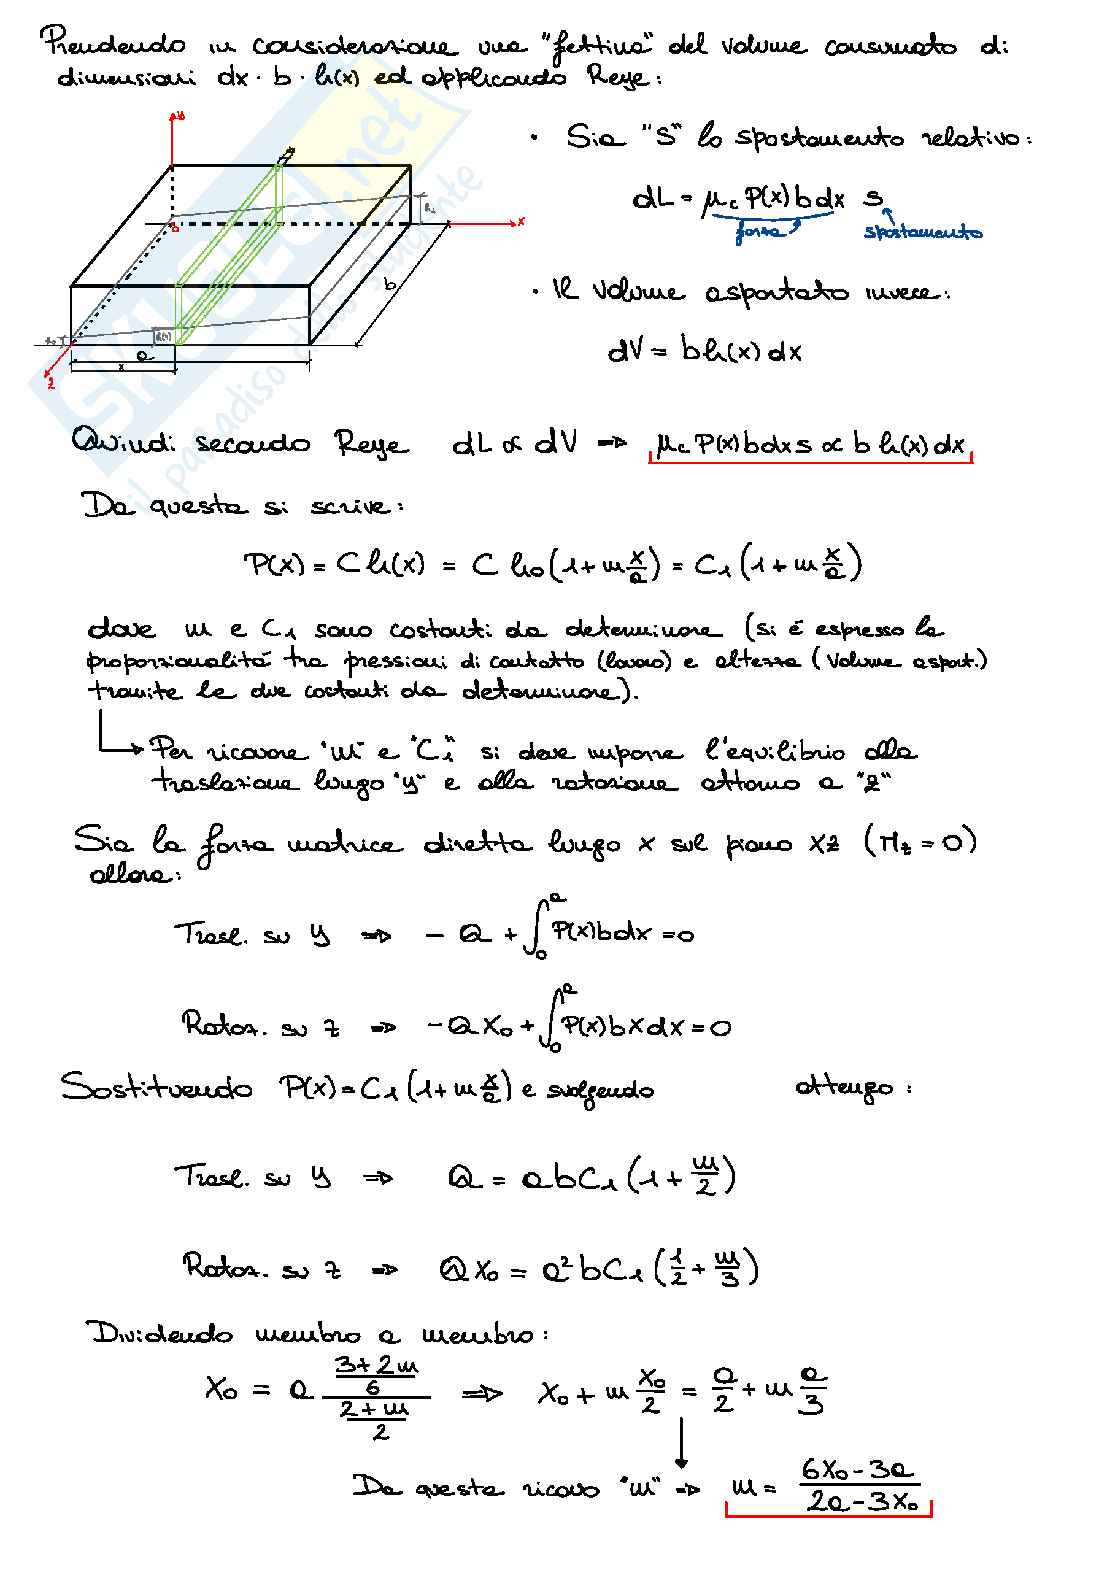 Prendendo in considerazione una "fettina" del volume consumato di
dimensioni dx · b · h(x) ed applicando Reye:
· Sia "S" lo spostamento relativo:
dL = μc P(x) b dx s
forza spostamento
· Il volume asportato invece:
dV = b h(x) dx
y
x
z
b
h(x)
a
x
Quindi secondo Reye dL ∝ dV ⇒ μc P(x) b dx s ∝ b h(x) dx
Da questa si scrive:
P(x) = C h(x) = C h0 (1 + m x/a) = C1 (1 + m x/a)
dove m e C1 sono costanti da determinare (si é espresso la
proporzionalitá tra pressioni di contatto (lavoro) e altezza (Volume asport.)
tramite le due costanti da determinare).
Per ricavare "m" e "C1" si deve imporre l'equilibrio alla
traslazione lungo "y" e alla rotazione attorno a "z"
Sia la forza motrice diretta lungo x sul piano xz (Mz = 0)
allora:
Trasl. su y ⇒ - Q + ∫0^a P(x) b dx = 0
Rotaz. su z ⇒ - Q X0 + ∫0^a P(x) b x dx = 0
Sostituendo P(x) = C1 (1 + m x/a) e svolgendo ottengo:
Trasl. su y ⇒ Q = a b C1 (1 + m/2)
Rotaz. su z ⇒ Q X0 = a² b C1 (1/2 + m/3)
Dividendo membro a membro:
X0 = a ((3+2m)/6)/((2+m)/2) ⇒ X0 + m X0/2 = a/2 + m a/3
Da questa ricavo "m" ⇒ m = (6X0 - 3a)/(2a - 3X0)
SKUOLA.net
il paradiso dello studente